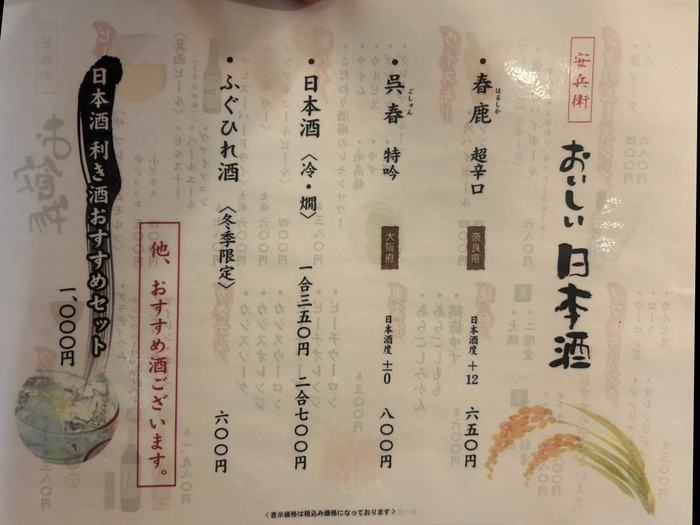 安兵衛
おいしい日本酒
・春鹿 超辛口 奈良県 日本酒度 +12 六五〇円
はるしか
・呉春 特吟 大阪府 日本酒度 ±0 八〇〇円
ごしゅん
・日本酒〈冷・燗〉 一合三五〇円 二合七〇〇円
・ふぐひれ酒〈冬季限定〉 六〇〇円
他、おすすめ酒ございます。
日本酒 利き酒おすすめセット
一、〇〇〇円
〈表示価格は税込み価格になっております〉